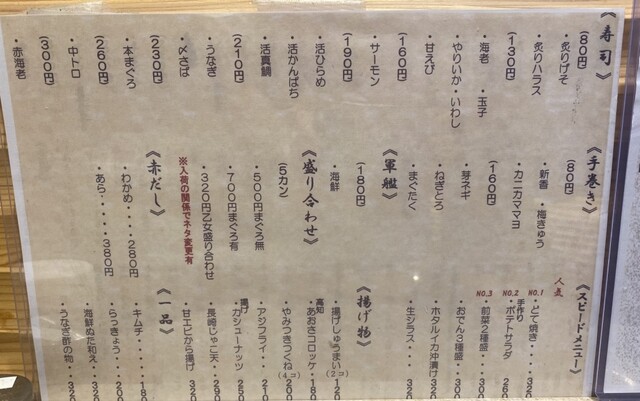 《寿司》
(80円)
・炙りげそ
・炙りハラス
(130円)
・海老 ・玉子
・やりいか・いわし
・甘えび
(160円)
・サーモン
(190円)
・活ひらめ
・活かんぱち
・活真鯛
(210円)
・うなぎ
・〆さば
(230円)
・本まぐろ
(260円)
・中トロ
(300円)
・赤海老
《手巻き》
(80円)
・新香 ・梅きゅう
・カニカママヨ
(160円)
・芽ネギ
・ねぎとろ
・まぐたく
《軍艦》
(180円)
・海鮮
《盛り合わせ》
(5カン)
・500円まぐろ無
・700円まぐろ有
・320円乙女盛り合わせ
※入荷の関係でネタ変更有
《赤だし》
・わかめ・・・・280円
・あら・・・・・380円
《スピードメニュー》
人気
NO.1 ・どて焼き・・・320
NO.2 ・手作りポテトサラダ 260
NO.3 ・前菜2種盛・・・300
・おでん3種盛・・・300
・ホタルイカ沖漬け 320
・生シラス・・・320
《揚げ物》
・揚げしゅうまい(2コ) 120
・高知あおさコロッケ 180
・やみつきつくね(4コ) 200
・アジフライ・・・210
・揚げカシューナッツ 250
・長崎じゃこ天・・・290
・甘エビから揚げ 320
《一品》
・キムチ・・・・180
・らっきょう・・・200
・海鮮ぬた和え・・320
・うなぎ酢の物・・320